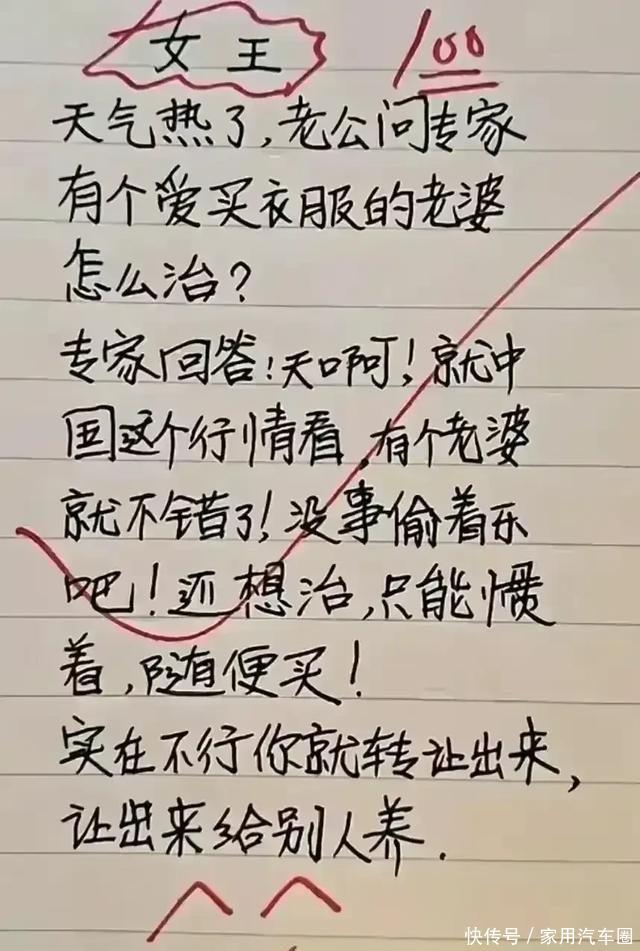 女王
100
天气热了,老公问专家
有个爱买衣服的老婆
怎么治?
专家回答!天啊!就中
国这个行情看,有个老婆
就不错了!没事偷着乐
吧!还想治,只能惯
着,随便买!
实在不行你就转让出来,
让出来给别人养.
快传号/家用汽车圈